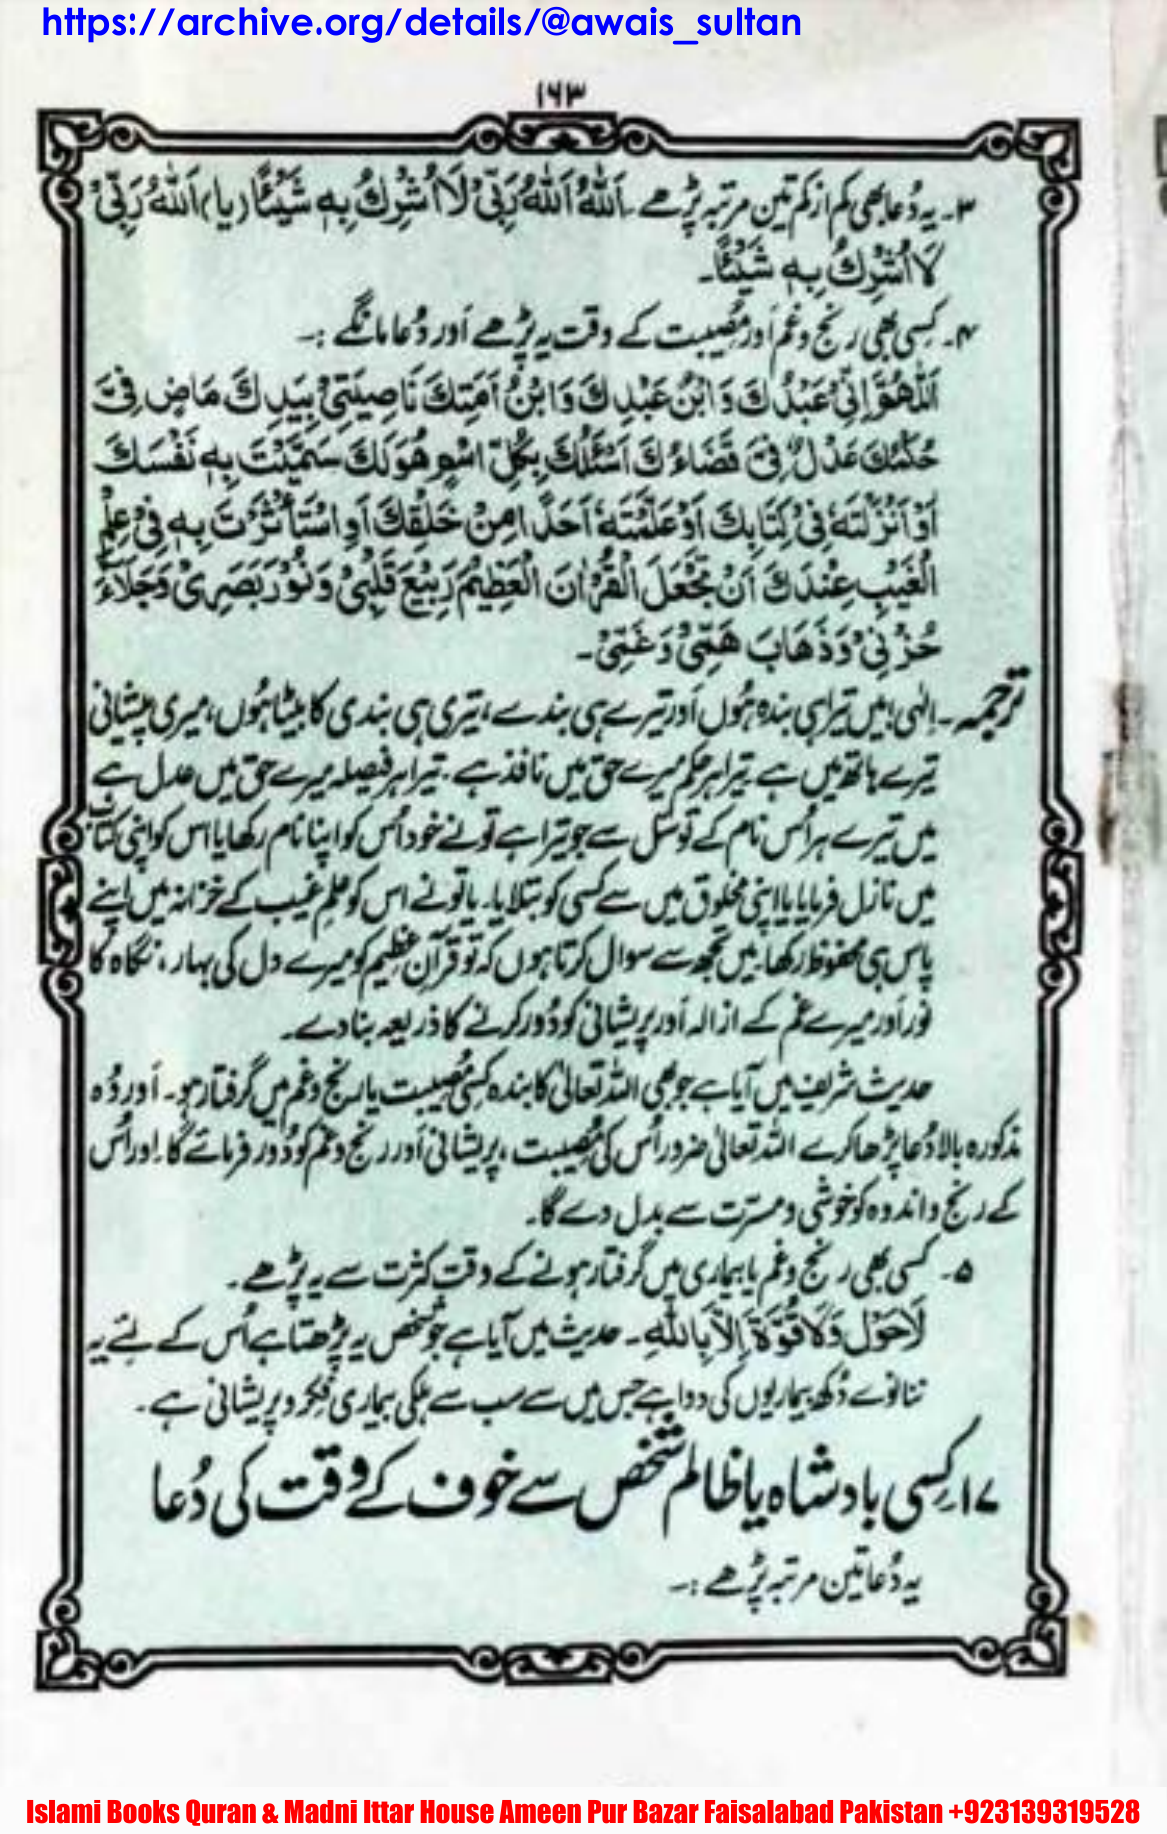 https://archive.org/details/@awais_sultan
۱۶۳
۳۔ یہ دُعا بھی کم از کم تین مرتبہ پڑھے۔ اَللّٰهُ اَللّٰهُ رَبِّیْ لَا اُشْرِكُ بِهٖ شَیْئًا (یا) اَللّٰهُ رَبِّیْ
لَا اُشْرِكُ بِهٖ شَیْئًا۔
۴۔ کسی بھی رنج و غم اَور مُصیبت کے وقت یہ پڑھے اَور دُعا مانگے :۔
اَللّٰهُمَّ اِنِّیْ عَبْدُكَ وَابْنُ عَبْدِكَ وَابْنُ اَمَتِكَ نَاصِیَتِیْ بِیَدِكَ مَاضٍ فِیَّ
حُكْمُكَ عَدْلٌ فِیَّ قَضَاءُكَ اَسْئَلُكَ بِكُلِّ اسْمٍ هُوَ لَكَ سَمَّیْتَ بِهٖ نَفْسَكَ
اَوْ اَنْزَلْتَهٗ فِیْ كِتَابِكَ اَوْ عَلَّمْتَهٗ اَحَدًا مِنْ خَلْقِكَ اَوِ اسْتَأْثَرْتَ بِهٖ فِیْ عِلْمِ
الْغَیْبِ عِنْدَكَ اَنْ تَجْعَلَ الْقُرْاٰنَ الْعَظِیْمَ رَبِیْعَ قَلْبِیْ وَنُوْرَ بَصَرِیْ وَجَلَاءَ
حُزْنِیْ وَذَهَابَ هَمِّیْ وَغَمِّیْ۔
ترجمہ۔ الٰہی! میں تیرا ہی بندہ ہُوں اَور تیرے ہی بندے، تیری ہی بندی کا بیٹا ہُوں، میری پیشانی
تیرے ہاتھ میں ہے۔ تیرا ہر حکم میرے حق میں نافذ ہے۔ تیرا ہر فیصلہ میرے حق میں عدل ہے
میں تیرے ہر اُس نام کے توسّل سے جو تیرا ہے تو نے خود اُس کو اپنا نام رکھا یا اس کو اپنی کتاب
میں نازل فرمایا یا اپنی مخلوق میں سے کسی کو بتلایا۔ یا تو نے اس کو علمِ غیب کے خزانہ میں اپنے
پاس ہی محفوظ رکھا۔ میں تجھ سے سوال کرتا ہوں کہ تو قرآنِ عظیم کو میرے دل کی بہار، نگاہ کا
نور اَور میرے غم کے ازالہ اَور پریشانی کو دُور کرنے کا ذریعہ بنا دے۔
حدیث شریف میں آیا ہے جو بھی اللہ تعالیٰ کا بندہ کسی مُصیبت یا رنج و غم میں گرفتار ہو۔ اَور وُہ
مذکورہ بالا دُعا پڑھا کرے اللہ تعالیٰ ضرور اُس کی مُصیبت، پریشانی اَور رنج و غم کو دُور فرمائے گا۔ اور اُس
کے رنج و اندوہ کو خوشی و مسرّت سے بدل دے گا۔
۵۔ کسی بھی رنج و غم یا بیماری میں گرفتار ہونے کے وقت کثرت سے یہ پڑھے۔
لَاحَوْلَ وَلَا قُوَّةَ اِلَّا بِاللّٰهِ۔ حدیث میں آیا ہے جو شخص یہ پڑھتا ہے اُس کے لئے یہ
ننانوے دُکھ بیماریوں کی دوا ہے جس میں سے سب سے ہلکی بیماری فکر و پریشانی ہے۔
۱۷۔ کسی بادشاہ یا ظالم شخص سے خوف کے وقت کی دُعا
یہ دُعا تین مرتبہ پڑھے :۔
Islami Books Quran & Madni Ittar House Ameen Pur Bazar Faisalabad Pakistan +923139319528